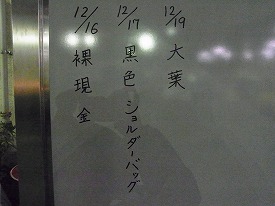 12/19 大葉
12/17 黒色ショルダーバッグ
12/16 裸現金